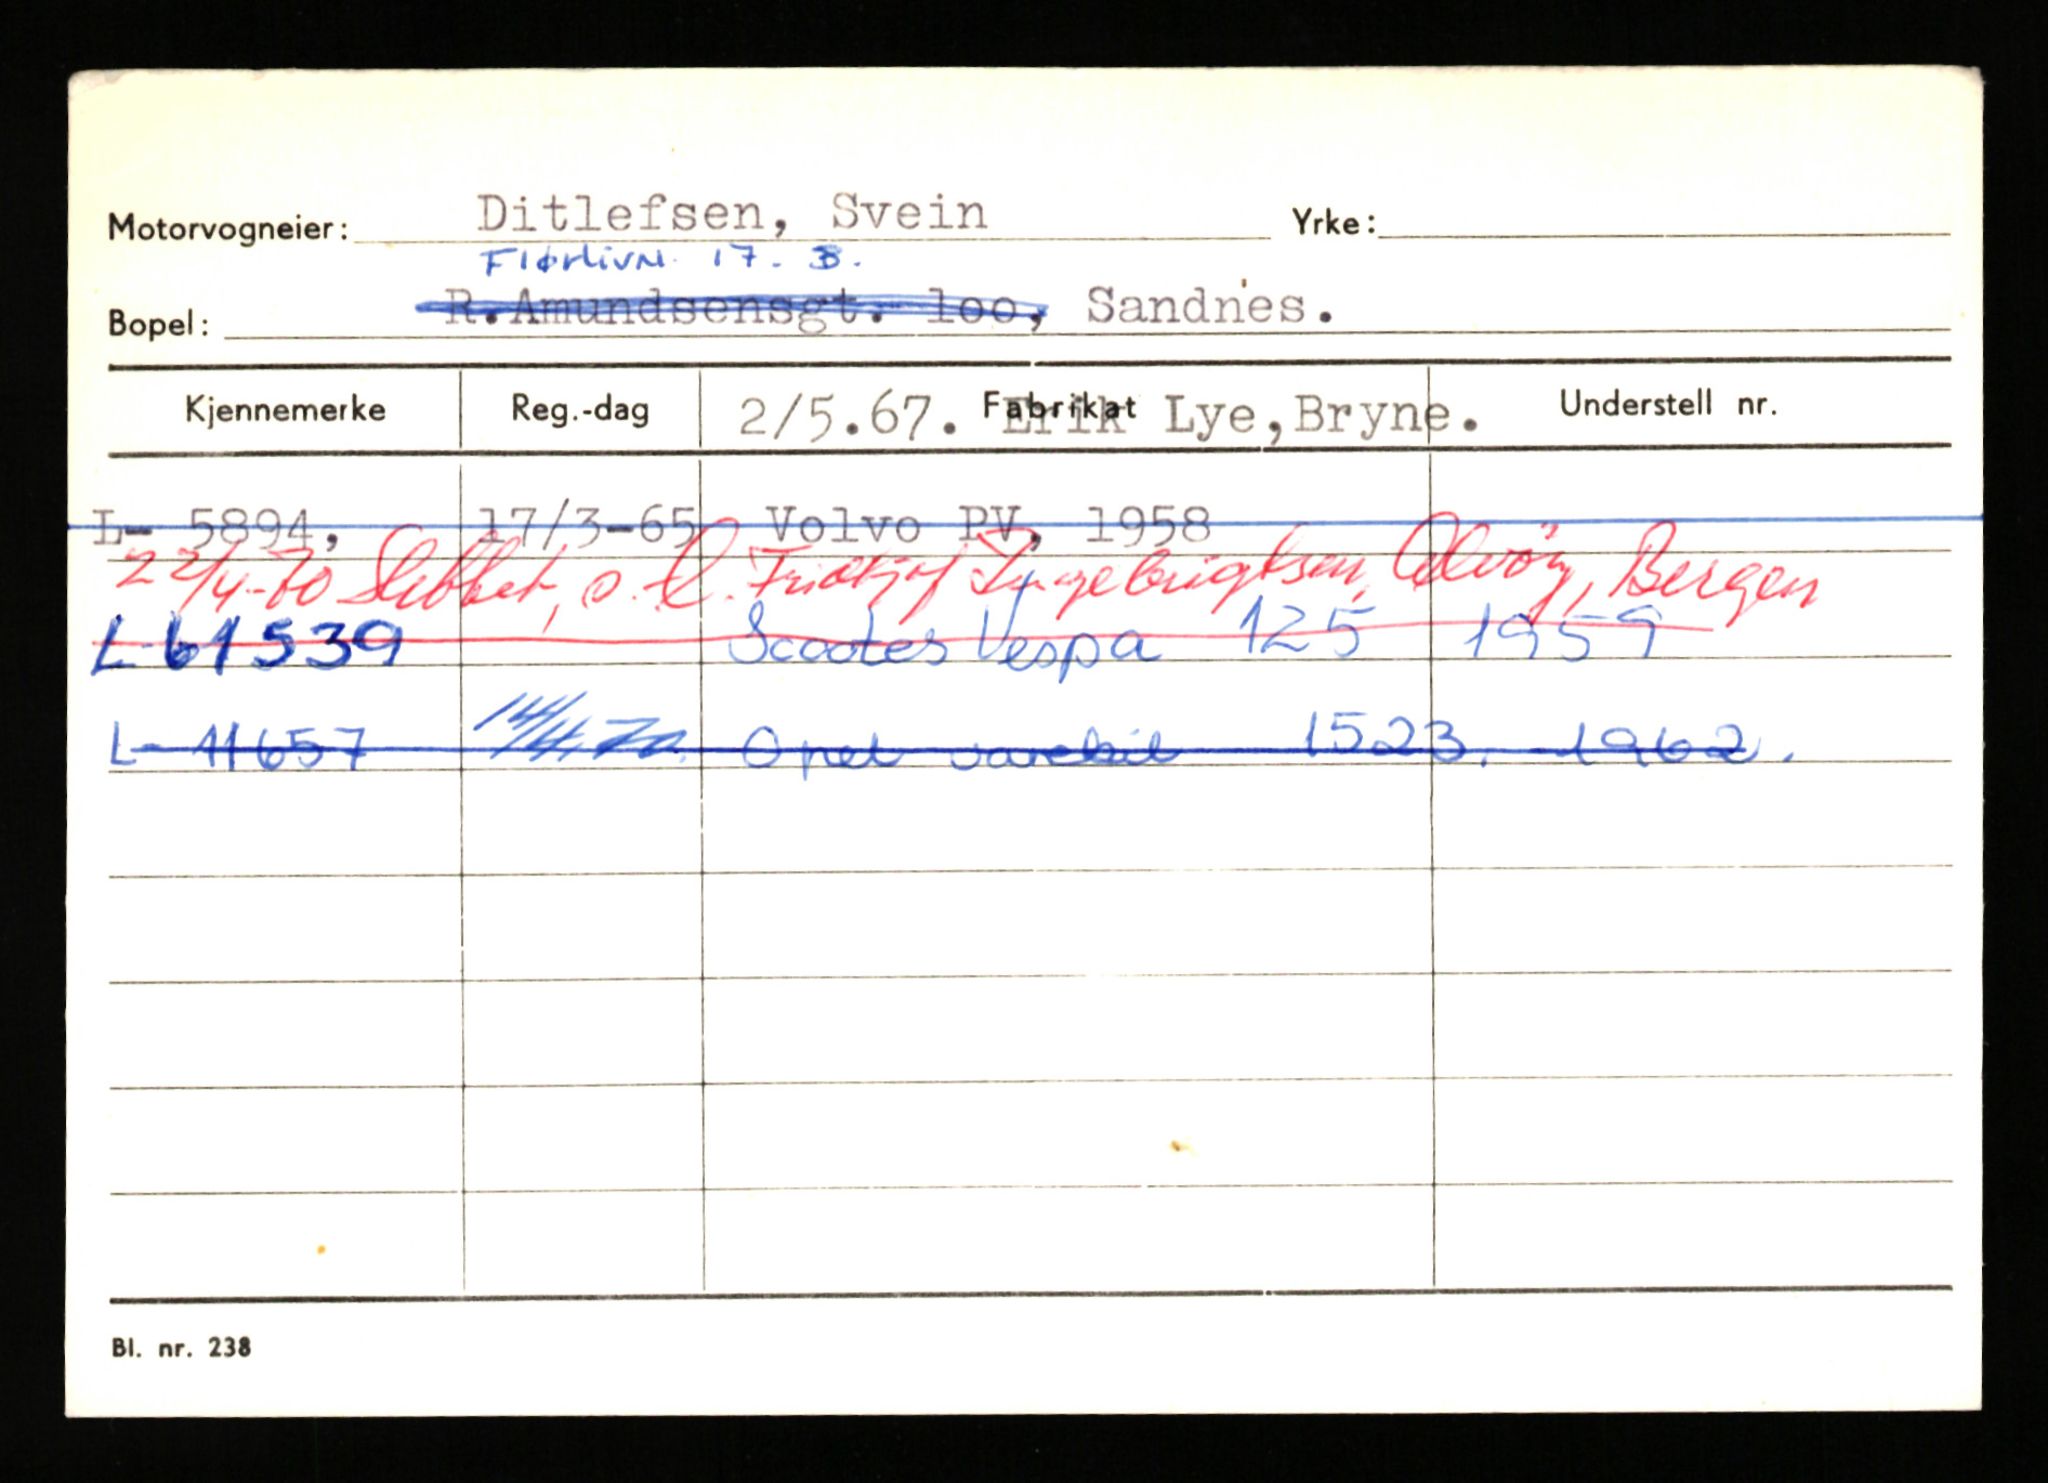 Motorvogneier: Ditlefsen, Svein Yrke:
17. B.
Bopel: R.Amundsensgt. loo, Sandnes.
Kjennemerke Reg.-dag Fabrikat Understell nr.
2/5.67. Erik Lye,Bryne.
L- 5894, 17/3-65 Volvo PV, 1958
22/4-70 Slettet, s. e. Fridtjof Ingebrigtsen, Alvöy, Bergen
L-61539 Scooter Vespa 125 1959
L- 11657 14/4.70. Opel varebil 1523. 1962.
Bl. nr. 238